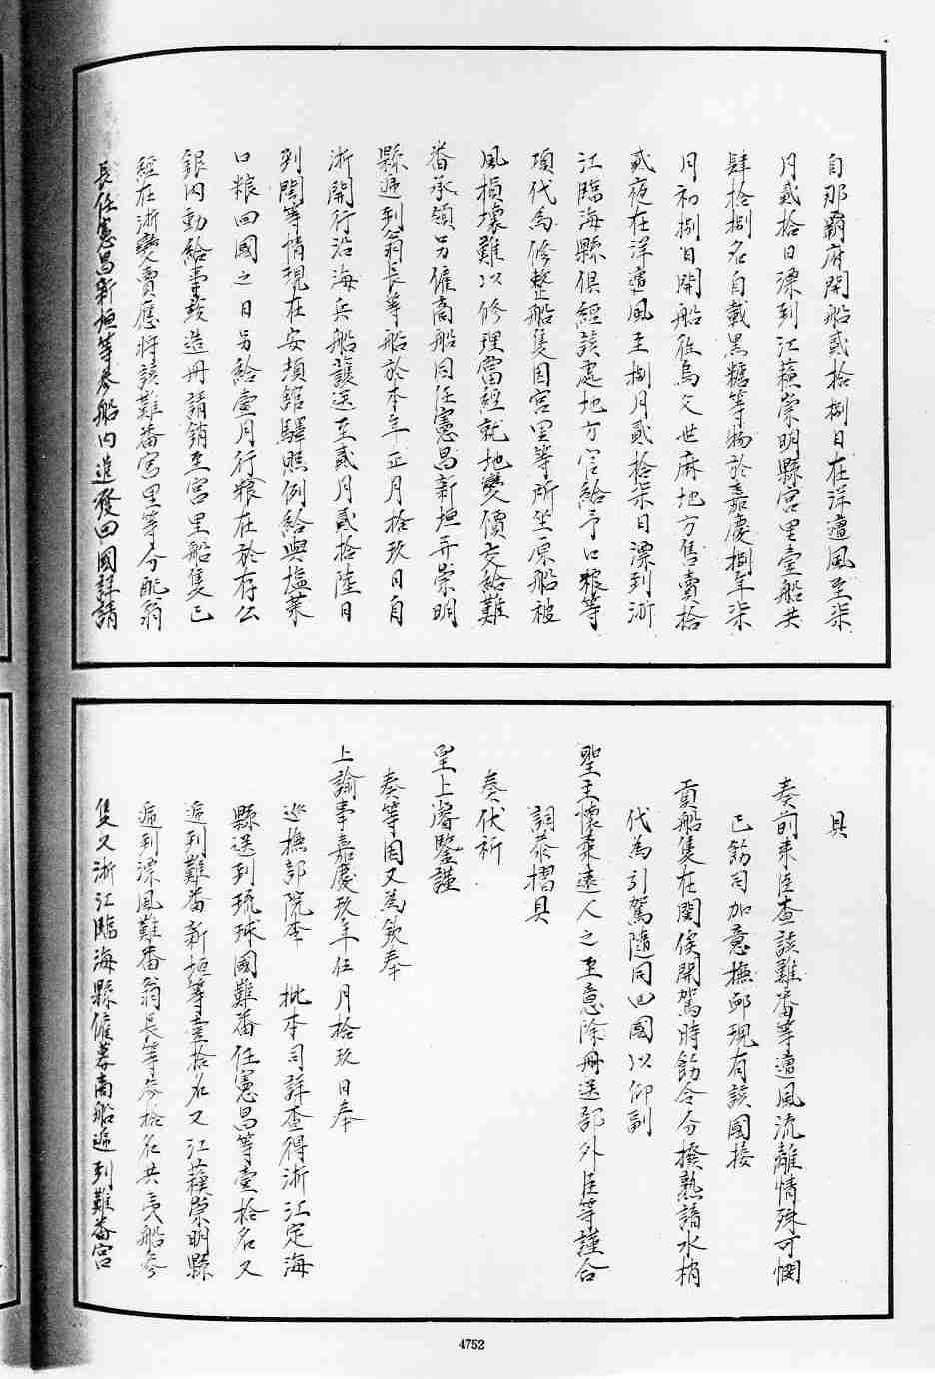 自那霸府開船貳拾捌日在洋遭風至柒
月貳拾日漂到江蘇崇明縣宮里壹船共
肆拾捌名自載黑糖等物於嘉慶捌年柒
月初捌日開船往烏父世麻地方售賣拾
貳夜在洋遭風至捌月貳拾柒日漂到浙
江臨海縣俱經該處地方官給予口糧等
項代為修整船隻因宮里等所坐原船被
風損壞難以修理當經就地變價交給難
番承領另僱商船同任憲昌新垣并崇明
縣遞到翁長等船於本年正月拾玖日自
浙開行沿海兵船護送至貳月貳拾陸日
到閩等情現在安頓館驛照例給與塩菜
口糧回國之日另給壹月行糧在於存公
銀內動給事竣造冊請銷至宮里船隻已
經在浙變賣應將該難番宮里等分配翁
長任憲昌新垣等叁船內進發回國詳請
具
奏前來臣查該難番等遭風流離情殊可憫
已飭司加意撫卹現有該國接
貢船隻在閩俟開駕時飭令分撥熟諳水梢
代為引駕隨同回國以仰副
聖主懷柔遠人之至意除冊送部外臣等謹合
詞恭摺具
奏伏祈
皇上睿鑒謹
奏等因又為欽奉
上諭事嘉慶玖年伍月拾玖日奉
巡撫部院李 批本司詳查得浙江定海
縣送到琉球國難番任憲昌等壹拾名又
遞到難番新垣等壹拾名又江蘇崇明縣
遞到漂風難番翁長等叁拾名共夷船叁
隻又浙江臨海縣僱募商船遞到難番宮
4752